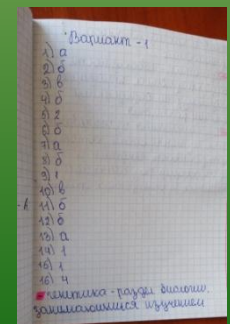 Вариант - 1
1) а
2) б
3) в
4) б
5) 2
6) б
7) а
8) б
9) 1
10) в
11) б
12) б
13) а
14) 1
15) 1
16) 4
генетика - раздел биологии,
занимающийся изучением